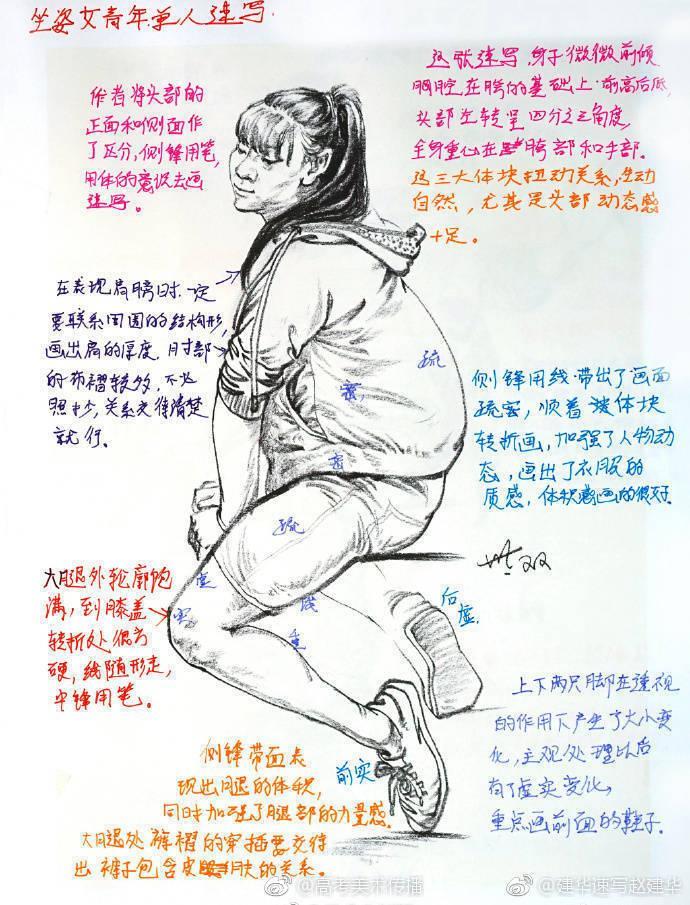 坐姿女青年单人速写
作者将头部的
正面和侧面作
了区分,侧锋用笔,
用体的意识去画
速写。
这张速写,身子微微前倾
胸腔在胯的基础上前高后低,
头部左转呈四分之三角度
全身重心在胯部和手部。
这三大体块扭动关系,生动
自然,尤其是头部动态感
十足。
在表现肩膀时一定
要联系周围的结构形,
画出肩的厚度,肘部
的布褶较多,不必
照抄,关系交待清楚
就行。
疏
密
密
疏
侧锋用线带出了画面
疏密,顺着形体块
转折画,加强了人物动
态,画出了衣服的
质感,体积感画的很好。
大腿外轮廓饱
满,到膝盖
转折处偏方
硬,线随形走,
中锋用笔。
虚
实
线
重
后
虚
上下两只脚在透视
的作用下产生了大小变
化,主观处理以后
有了虚实变化,
重点画前面的鞋子。
前实
侧锋带面表
现出腿的体积,
同时加强了腿部的力量感。
大腿处裤褶的穿插要交待
出裤子包含皮肤的关系。
@高考美术传播
@建华速写赵建华